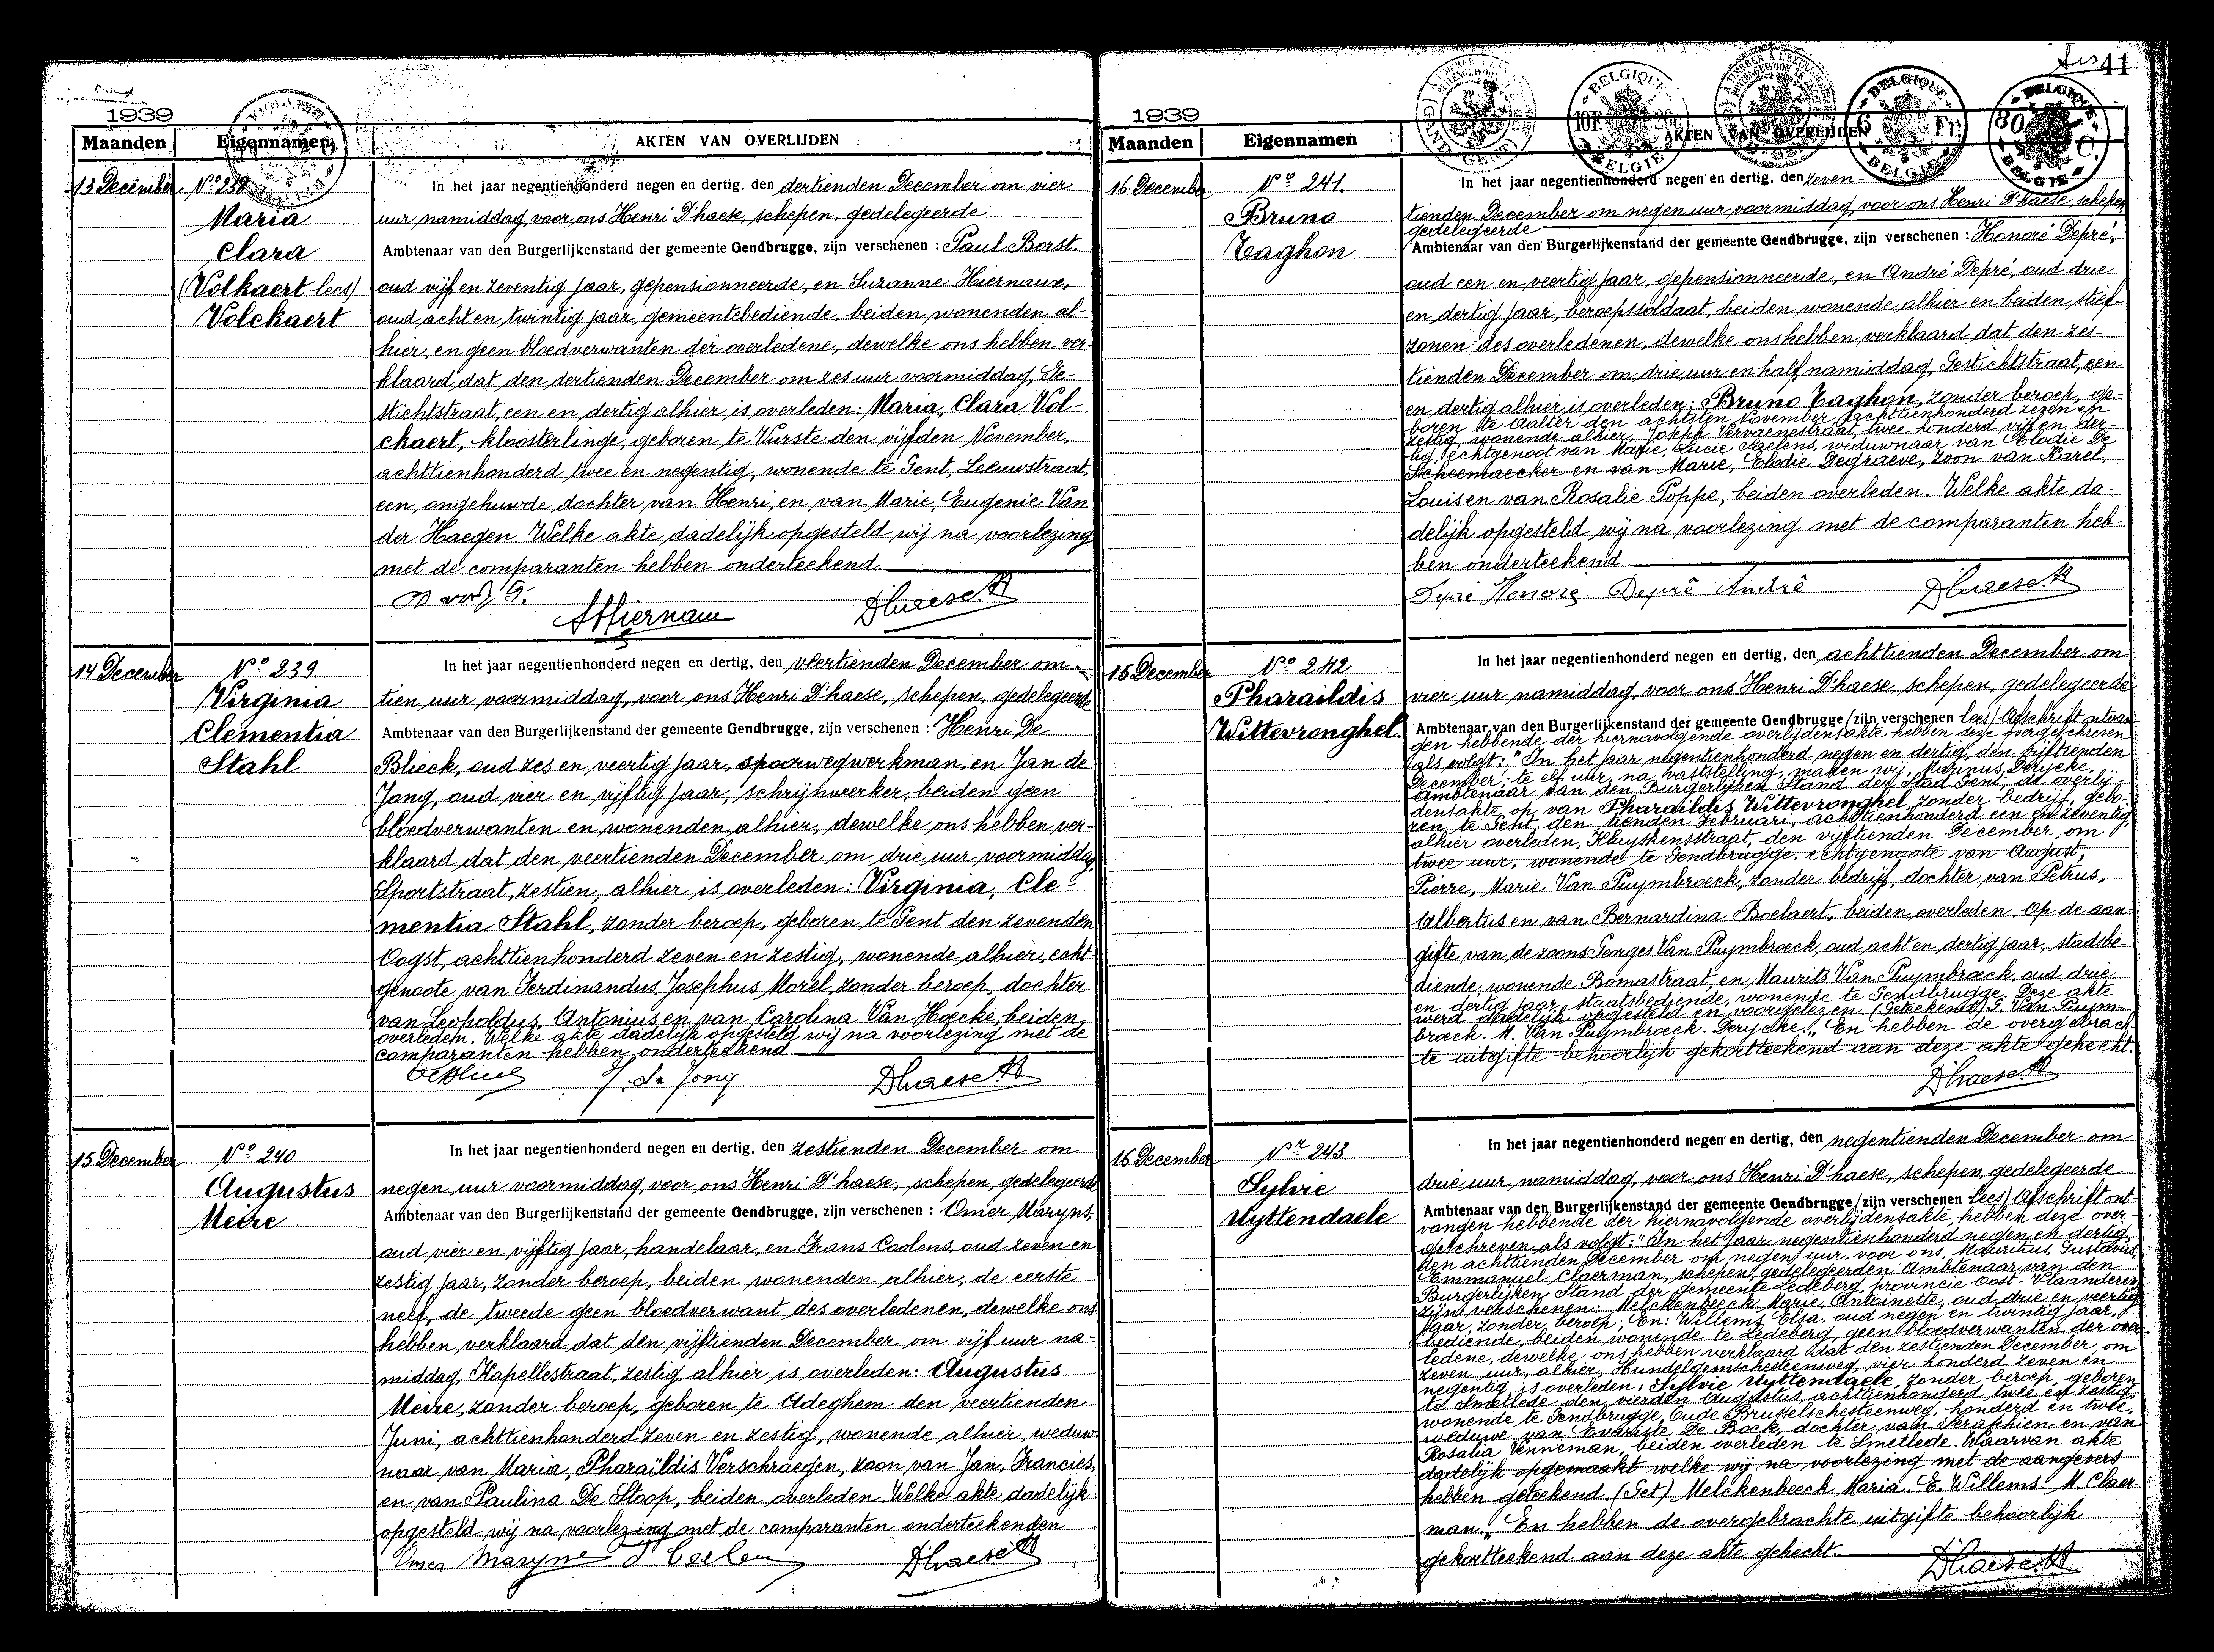 41
1939
Maanden
Eigennamen
AKTEN VAN OVERLIJDEN
13 December
Nº 238
Maria
Clara
(Volkaert lees)
Volckaert
In het jaar negentienhonderd negen en dertig, den dertienden December om vier
uur namiddag, voor ons Henri D'haese, schepen, gedelegeerde
Ambtenaar van den Burgerlijkenstand der gemeente Gendbrugge, zijn verschenen : Paul Borst.
oud vijf en zeventig jaar, gepensionneerde, en Suzanne Hiernaux,
oud acht en twintig jaar, gemeentebediende, beiden wonenden al-
hier, en geen bloedverwanten der overledene, dewelke ons hebben ver-
klaard dat den dertienden December om zes uur voormiddag, Ge-
stichtstraat, een en dertig alhier is overleden: Maria, Clara Vol-
ckaert, kloosterlinge, geboren te Vurste den vijfden November,
achttienhonderd twee en negentig, wonende te Gent, Leeuwstraat,
een, ongehuwde dochter van Henri, en van Marie, Eugenie Van
der Haegen. Welke akte dadelijk opgesteld wij na voorlezing
met de comparanten hebben onderteekend.
Dhaese H
14 December
Nº 239.
Virginia
Clementia
Stahl
In het jaar negentienhonderd negen en dertig, den veertienden December om
tien uur voormiddag, voor ons Henri D'haese, schepen, gedelegeerde
Ambtenaar van den Burgerlijkenstand der gemeente Gendbrugge, zijn verschenen : Henri De
Blieck, oud zes en veertig jaar, spoorwegwerkman, en Jan de
Jong, oud vier en vijftig jaar, schrijnwerker, beiden geen
bloedverwanten en wonenden alhier, dewelke ons hebben ver-
klaard dat den veertienden December om drie uur voormiddag,
Sportstraat, zestien, alhier is overleden: Virginia, Cle-
mentia Stahl, zonder beroep, geboren te Gent den zevenden
Oogst, achttienhonderd zeven en zestig, wonende alhier, echt-
genoote van Ferdinandus, Josephus Morel, zonder beroep, dochter
van Leopoldus, Antonius en van Carolina Van Hoecke, beiden
overleden. Welke akte dadelijk opgesteld wij na voorlezing met de
comparanten hebben onderteekend.
J de Jong
Dhaese H
15 December
Nº 240
Augustus
Meire
In het jaar negentienhonderd negen en dertig, den zestienden December om
negen uur voormiddag, voor ons Henri D'haese, schepen, gedelegeerde
Ambtenaar van den Burgerlijkenstand der gemeente Gendbrugge, zijn verschenen : Omer Maryns,
oud vier en vijftig jaar, handelaar, en Frans Coolens, oud zeven en
zestig jaar, zonder beroep, beiden wonenden alhier, de eerste
neef, de tweede geen bloedverwant des overledenen, dewelke ons
hebben verklaard dat den vijftienden December om vijf uur na-
middag, Kapellestraat, zestig, alhier is overleden: Augustus
Meire, zonder beroep, geboren te Adeghem den veertienden
Juni, achttienhonderd zeven en zestig, wonende alhier, weduw-
naar van Maria, Pharaïldis Verschraegen, zoon van Jan, Francies,
en van Paulina De Stoop, beiden overleden. Welke akte dadelijk
opgesteld wij na voorlezing met de comparanten onderteekenden.
Omer Maryns
Dhaese H
1939
Maanden
Eigennamen
AKTEN VAN OVERLIJDEN
BELGIQUE
10F
BELGIE
BELGIQUE
6 Fr.
BELGIE
BELGIQUE
80 C.
BELGIE
16 December
Nº 241.
Bruno
Taghon
In het jaar negentienhonderd negen en dertig, den zeven-
tienden December om negen uur voormiddag, voor ons Henri D'haese, schepen
gedelegeerde
Ambtenaar van den Burgerlijkenstand der gemeente Gendbrugge, zijn verschenen : Honoré Depré,
oud een en veertig jaar, gepensionneerde, en André Depré, oud drie
en dertig jaar, beroepssoldaat, beiden wonende alhier en beiden stief-
zonen des overledenen, dewelke ons hebben verklaard dat den zes-
tienden December om drie uur en half namiddag, Gestichtstraat, een
en dertig alhier is overleden: Bruno Taghon, zonder beroep, ge-
boren te Aalter den achtsten November, achttienhonderd zeven en
zestig, wonende alhier, Joseph Vervaenestraat, twee honderd vijf en der-
tig, echtgenoot van Marie, Lucie Saelens, weduwnaar van Elodie De
Scheemaecker en van Marie, Elodie Degraeve, zoon van Karel,
Louis en van Rosalie Poppe, beiden overleden. Welke akte da-
delijk opgesteld wij na voorlezing met de comparanten heb-
ben onderteekend
Depré Honoré Depré André
Dhaese H
15 December
Nº 242
Pharaildis
Wittevronghel.
In het jaar negentienhonderd negen en dertig, den achttienden December om
vier uur namiddag, voor ons Henri D'haese, schepen, gedelegeerde
Ambtenaar van den Burgerlijkenstand der gemeente Gendbrugge (zijn verschenen lees) Afschrift ontvan-
gen hebbende der hiernavolgende overlijdensakte hebben deze overgeschreven
als volgt: "In het jaar negentienhonderd negen en dertig, den vijftienden
December, te elf uur, na vaststelling, maken wij, Marinus Derycke,
Ambtenaar van den Burgerlijken Stand der Stad Gent, de overlij-
densakte op van Pharaildis Wittevronghel, zonder bedrijf, gebo-
ren te Gent den tienden Februari, achttienhonderd een en zeventig,
alhier overleden, Kluyskensstraat, den vijftienden December, om
twee uur, wonende te Gendbrugge, echtgenoote van August,
Pierre, Marie Van Puymbroeck, zonder bedrijf, dochter van Petrus,
Albertus en van Bernardina Boelaert, beiden overleden. Op de aan-
gifte van de zoons Georges Van Puymbroeck, oud acht en dertig jaar, stadsbe-
diende, wonende Bomastraat, en Maurits Van Puymbroeck, oud drie
en dertig jaar, staatsbediende, wonende te Gendbrugge. Deze akte
werd dadelijk opgesteld en voorgelezen. (Geteekend) G. Van Puym-
broeck. M. Van Puymbroeck. Derycke." En hebben de overgebrach-
te uitgifte behoorlijk gekortteekend aan deze akte gehecht.
Dhaese H
16 December
Nr 243.
Sylvie
Uyttendaele
In het jaar negentienhonderd negen en dertig, den negentienden December om
drie uur namiddag, voor ons Henri D'haese, schepen, gedelegeerde
Ambtenaar van den Burgerlijkenstand der gemeente Gendbrugge (zijn verschenen lees) Afschrift ont-
vangen hebbende der hiernavolgende overlijdensakte, hebben deze over-
geschreven als volgt: "In het jaar negentienhonderd negen en dertig,
den achttienden December om negen uur, voor ons, Mauritius, Gustavus,
Emmanuel Claerman, schepen, gedelegeerden Ambtenaar van den
Burgerlijken Stand der gemeente Ledeberg, provincie Oost-Vlaanderen,
zijn verschenen: Melckenbeeck Marie, Antoinette, oud drie en veertig
jaar, zonder beroep, En: Willems Elza, oud negen en twintig jaar,
bediende, beiden wonende te Ledeberg, geen bloedverwanten der over-
ledene, dewelke ons hebben verklaard dat den zestienden December, om
zeven uur, alhier, Hundelgemschesteenweg, vier honderd zeven en
negentig is overleden: Sylvie Uyttendaele, zonder beroep, geboren
te Smetlede den vierden Augustus, achttienhonderd twee en zestig,
wonende te Gendbrugge, Oude Brusselschesteenweg, honderd en twee,
weduwe van Evariste De Bock, dochter van Seraphien en van
Rosalia Venneman, beiden overleden te Smetlede. Waarvan akte
dadelijk opgemaakt welke wij na voorlezing met de aangevers
hebben geteekend. (Get) Melckenbeeck Maria. E. Willems. M. Claer-
man." En hebben de overgebrachte uitgifte behoorlijk
gekortteekend aan deze akte gehecht.
Dhaese H